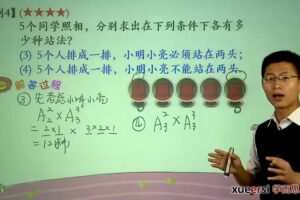 例4】(★★★★)
5个同学照相，分别求出在下列条件下各有多
少种站法?
(3) 5个人排成一排，小明小亮必须站在两头；
(4) 5个人排成一排，小明小亮不能站在两头；
解答过程
③ 先考虑小明小亮
A₂² × A₃³
= 2×1 × 3×2×1
= 12种
④ A₃² × A₃³
xueersi 学而思